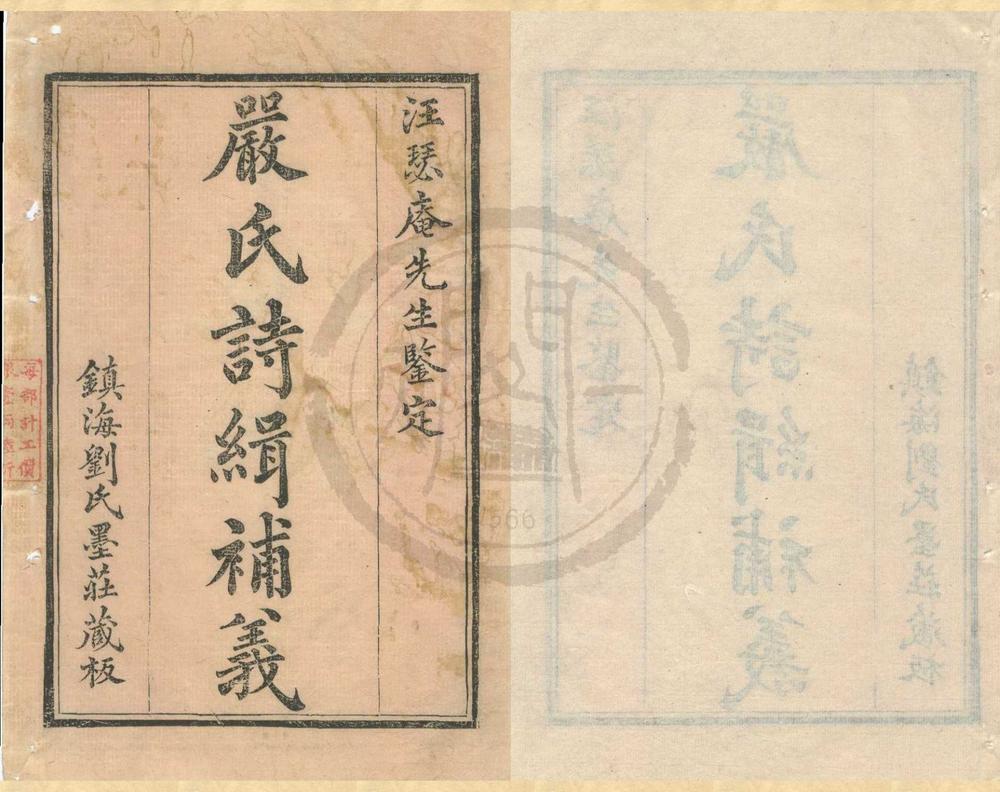 汪瑟庵先生鑒定
嚴氏詩緝補義
鎮海劉氏墨莊藏板
每部計工價